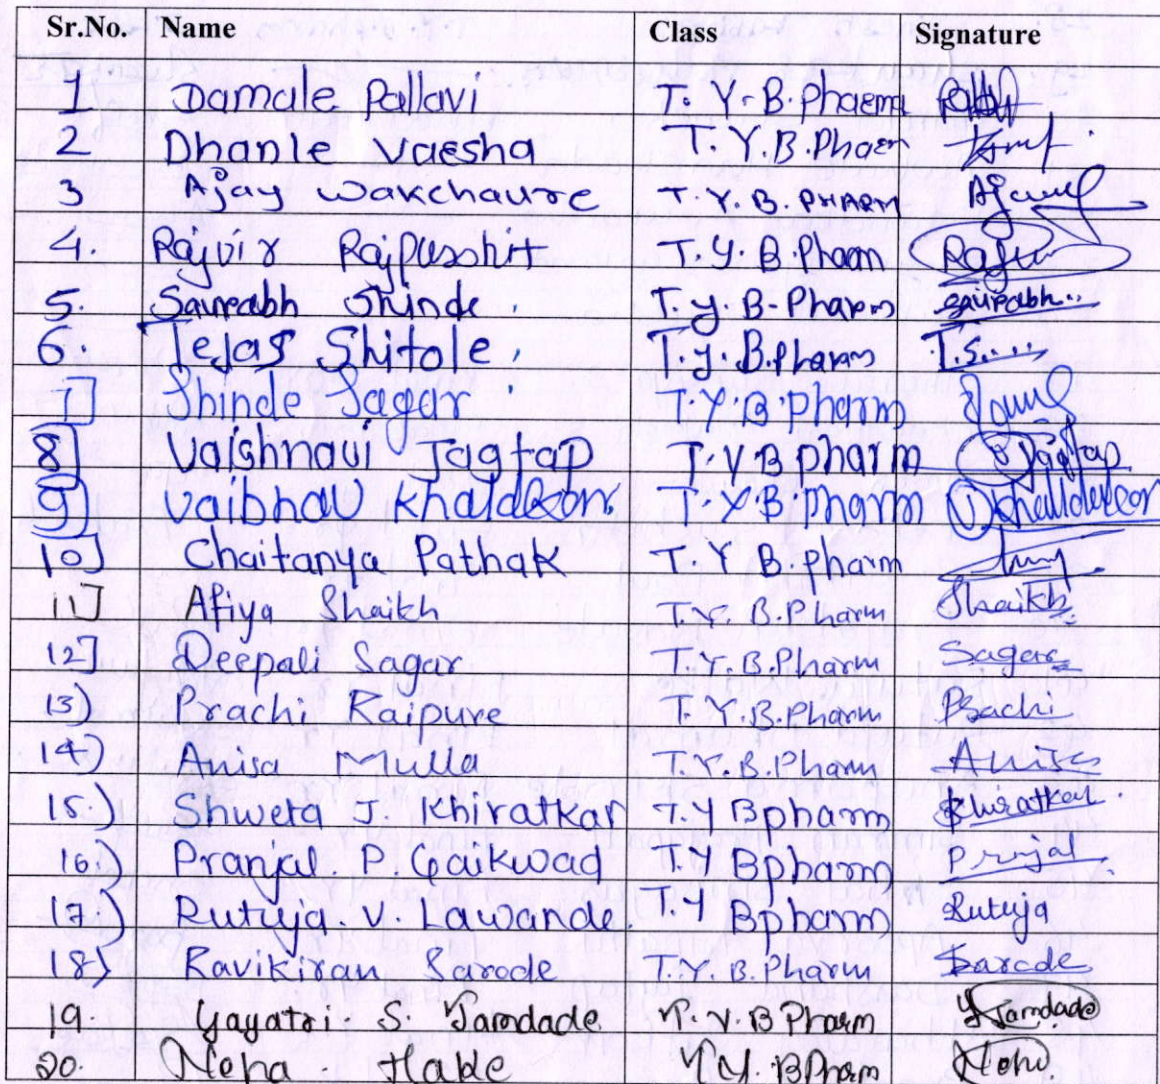 Sr.No. Name Class Signature
1 Damale Pallavi T. Y. B. Phaema
2 Dhanle Vaesha T. Y. B. Phaem
3 Ajay Wakchaure T. Y. B. PHARM
4. Rajvir T. Y. B. Pharm
5. Saurabh Shinde. T. Y. B. Pharm Saurabh..
6. Tejas Shitole, T. Y. B. Pharm T.s....
7] Shinde Sagar T. Y. B. Pharm
8] Vaishnavi Jagtap T. Y B pharm Jagtap
9] Vaibhav Khaldekar T. Y. B. Pharm
10] Chaitanya Pathak T. Y B. pharm
11] Afiya Shaikh T. Y. B. Pharm Shaikh
12] Deepali Sagar T. Y. B. Pharm Sagar
13) Prachi Raipure T. Y. B. Pharm Prachi
14) Anisa Mulla T. Y. B. Pharm Anisa
15.) Shweta J. Khiratkar T. Y Bpharm Khiratkar
16.) Pranjal. P. Gaikwad T. Y Bpharm Pranjal
17.) Rutuja. V. Lawande. T. Y Bpharm Rutuja
18) Ravikiran Sarode T. Y. B. Pharm Sarode
19. Yayatri S. Jamdade T. Y. B Pharm Jamdade
20. Neha. Hake T. Y. BPharm Neha.